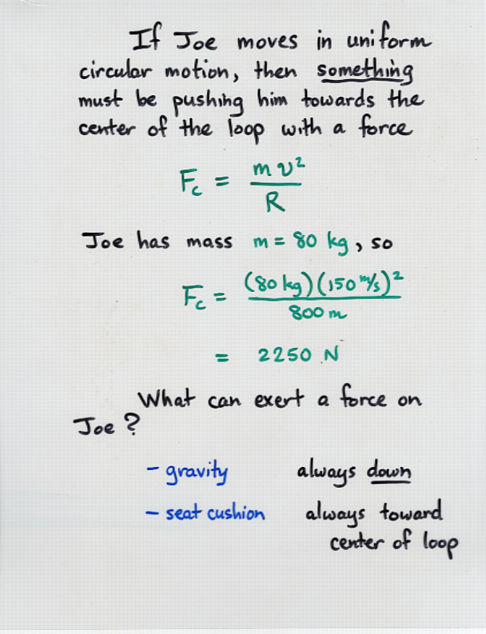 If Joe moves in uniform
circular motion, then something
must be pushing him towards the
center of the loop with a force
Fc = mv²/R
Joe has mass m = 80 kg, so
Fc = (80 kg)(150 m/s)²/800 m
= 2250 N
What can exert a force on
Joe?
- gravity always down
- seat cushion always toward
center of loop